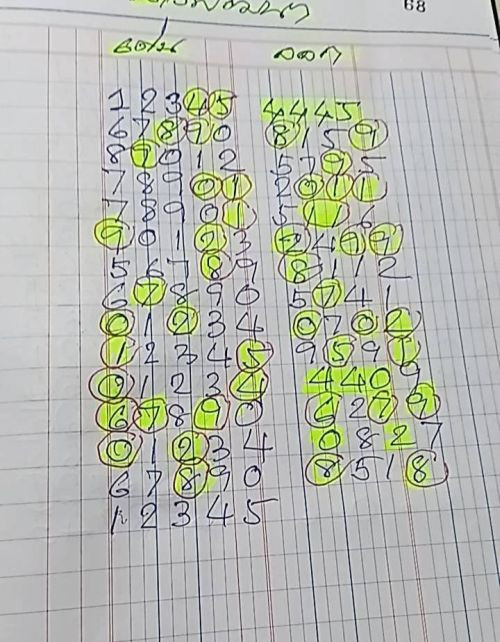 68
ออก
1 2 3 4 5 4 4 4 5
6 7 8 9 0 8 1 5 9
8 9 0 1 2 5 7 9 5
7 8 9 0 1 2 0 1 1
7 8 9 0 1 5 1 1 6
9 0 1 2 3 2 4 9 9
5 6 7 8 9 8 1 1 2
6 7 8 9 0 5 7 4 1
0 1 2 3 4 0 7 0 2
1 2 3 4 5 9 5 9 1
0 1 2 3 4 4 4 0 9
6 7 8 9 0 6 2 9 7
0 1 2 3 4 0 8 2 7
6 7 8 9 0 8 5 1 8
1 2 3 4 5